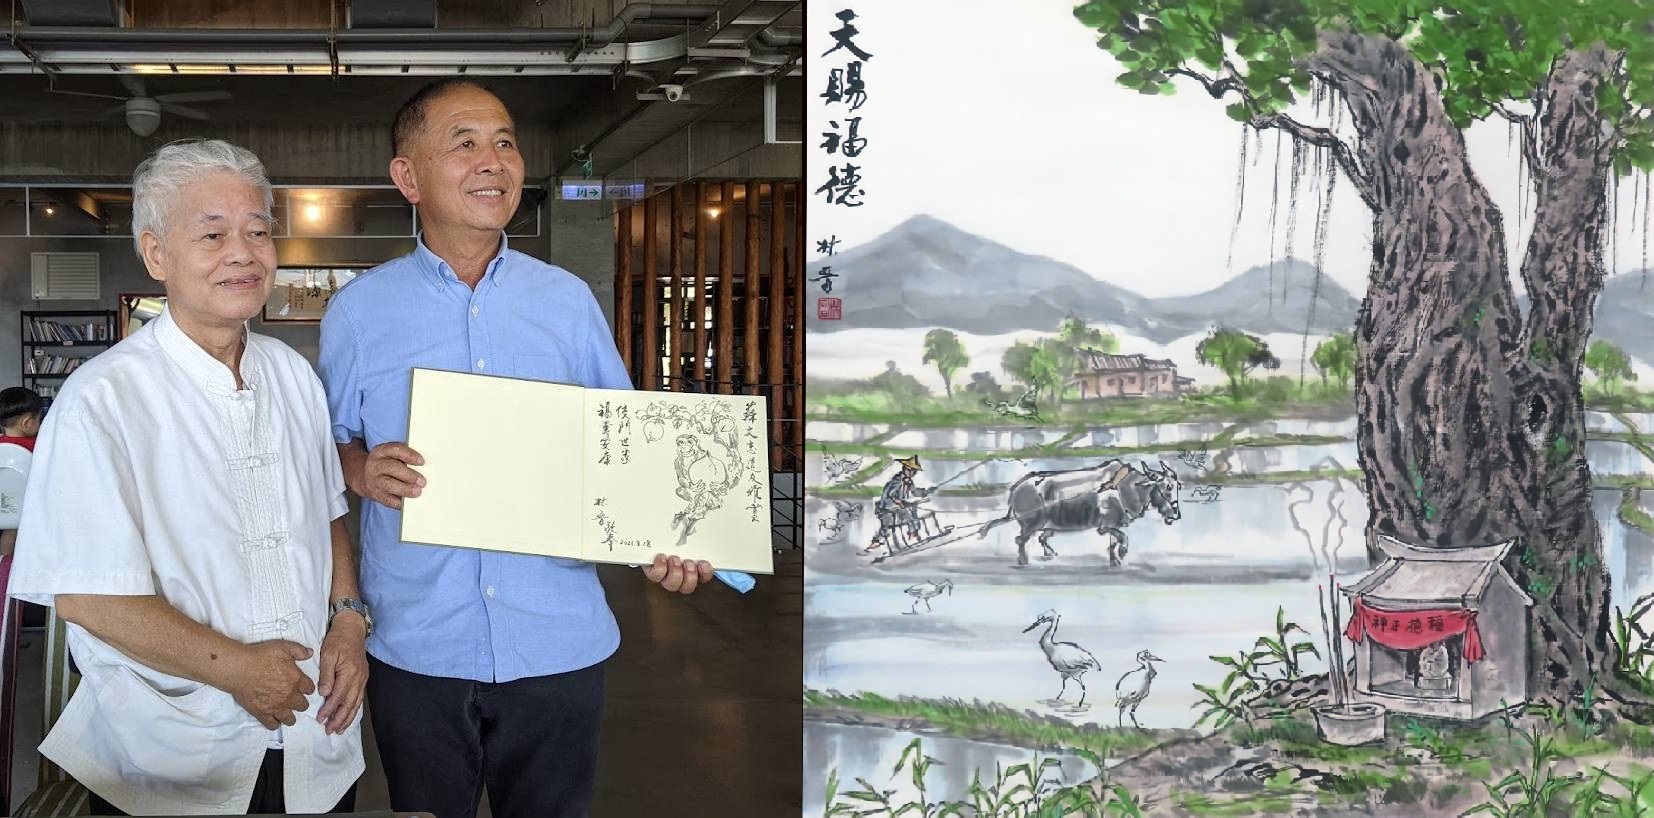 文志道友雅賞
門世家
福壽安康
林晉敬奉
天賜福德
林晉
福德正神